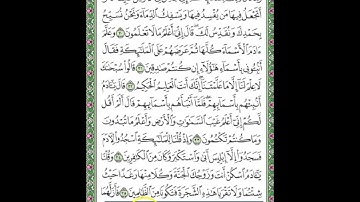 أَتَجْعَلُ فِيهَا مَن يُفْسِدُ فِيهَا وَيَسْفِكُ ٱلدِّمَآءَ وَنَحْنُ نُسَبِّحُ
بِحَمْدِكَ وَنُقَدِّسُ لَكَ ۖ قَالَ إِنِّىٓ أَعْلَمُ مَا لَا تَعْلَمُونَ ٣٠ وَعَلَّمَ
ءَادَمَ ٱلْأَسْمَآءَ كُلَّهَا ثُمَّ عَرَضَهُمْ عَلَى ٱلْمَلَـٰٓئِكَةِ فَقَالَ
أَنۢبِـُٔونِى بِأَسْمَآءِ هَـٰٓؤُلَآءِ إِن كُنتُمْ صَـٰدِقِينَ ٣١ قَالُوا۟ سُبْحَـٰنَكَ
لَا عِلْمَ لَنَآ إِلَّا مَا عَلَّمْتَنَآ ۖ إِنَّكَ أَنتَ ٱلْعَلِيمُ ٱلْحَكِيمُ ٣٢ قَالَ يَـٰٓـَٔادَمُ
أَنۢبِئْهُم بِأَسْمَآئِهِمْ ۖ فَلَمَّآ أَنۢبَأَهُم بِأَسْمَآئِهِمْ قَالَ أَلَمْ أَقُل
لَّكُمْ إِنِّىٓ أَعْلَمُ غَيْبَ ٱلسَّمَـٰوَٰتِ وَٱلْأَرْضِ وَأَعْلَمُ مَا تُبْدُونَ
وَمَا كُنتُمْ تَكْتُمُونَ ٣٣ وَإِذْ قُلْنَا لِلْمَلَـٰٓئِكَةِ ٱسْجُدُوا۟ لِـَٔادَمَ
فَسَجَدُوٓا۟ إِلَّآ إِبْلِيسَ أَبَىٰ وَٱسْتَكْبَرَ وَكَانَ مِنَ ٱلْكَـٰفِرِينَ ٣٤ وَقُلْنَا
يَـٰٓـَٔادَمُ ٱسْكُنْ أَنتَ وَزَوْجُكَ ٱلْجَنَّةَ وَكُلَا مِنْهَا رَغَدًا حَيْثُ
شِئْتُمَا وَلَا تَقْرَبَا هَـٰذِهِ ٱلشَّجَرَةَ فَتَكُونَا مِنَ ٱلظَّـٰلِمِينَ ٣٥ فَأَزَلَّهُمَا